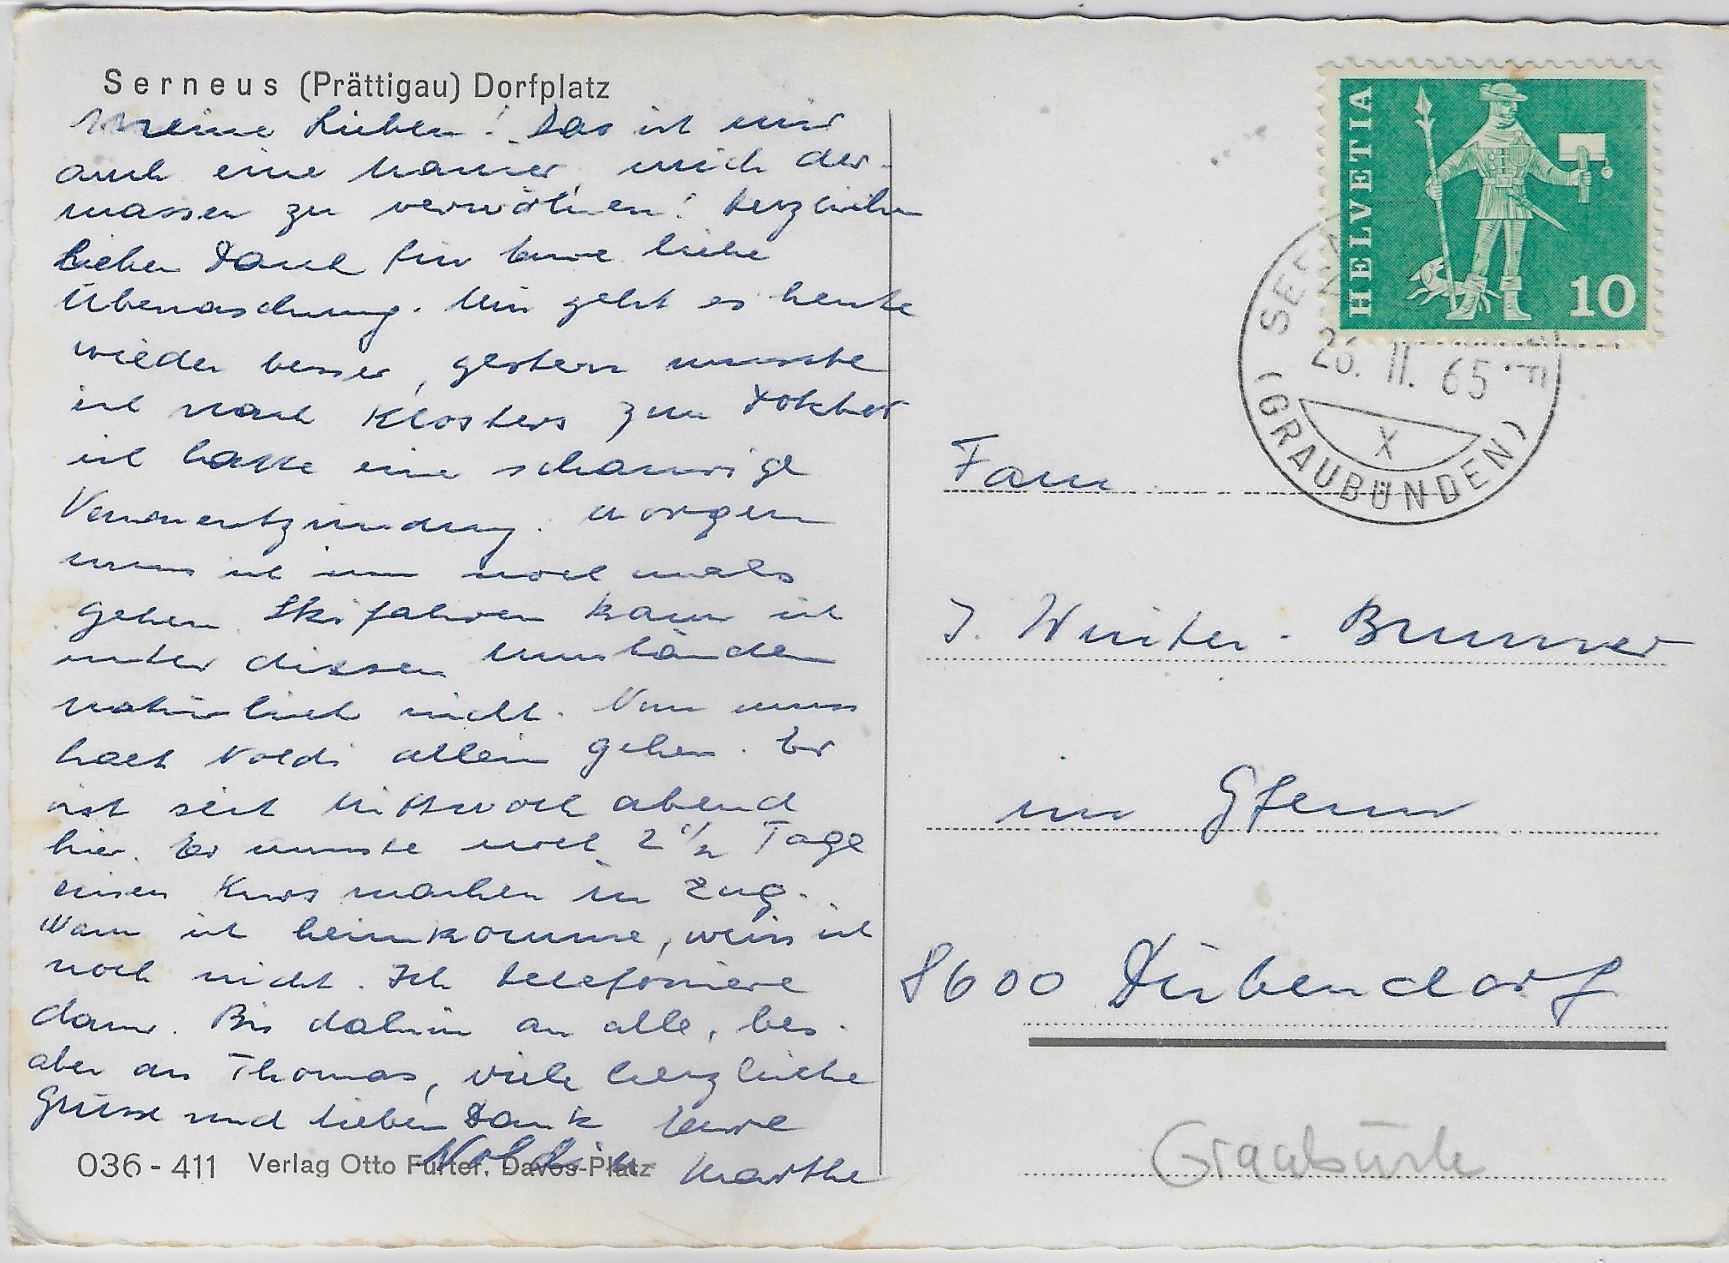 Serneus (Prättigau) Dorfplatz
Meine Lieben! Das ist mir
auch eine Manier, mich der-
massen zu verwöhnen! Herzlichen
lieben Dank für Eure liebe
Überraschung. Mir geht es heute
wieder besser, gestern musste
ich nach Klosters zum Doktor
ich hatte eine schaurige
Venenentzündung. Morgen
muss ich nochmals
gehen. Skifahren kann ich
unter diesen Umständen
natürlich nicht. Nun muss
halt Noldi allein gehen. Er
ist seit Mittwoch abend
hier. Er musste noch 2 1/2 Tage
einen Kurs machen in Zug.
Wann ich heimkomme, weiss ich
noch nicht. Ich telefoniere
dann. Bis dahin an alle, bes.
aber an Thomas, viele herzliche
Grüsse und lieben Dank Eure
Noldi u. Marthe
036-411 Verlag Otto Furter, Davos-Platz
HELVETIA
10
26. II. 65
X
(GRAUBÜNDEN)
Fam.
J. Winter-Brunner
im Gfenn
8600 Dübendorf